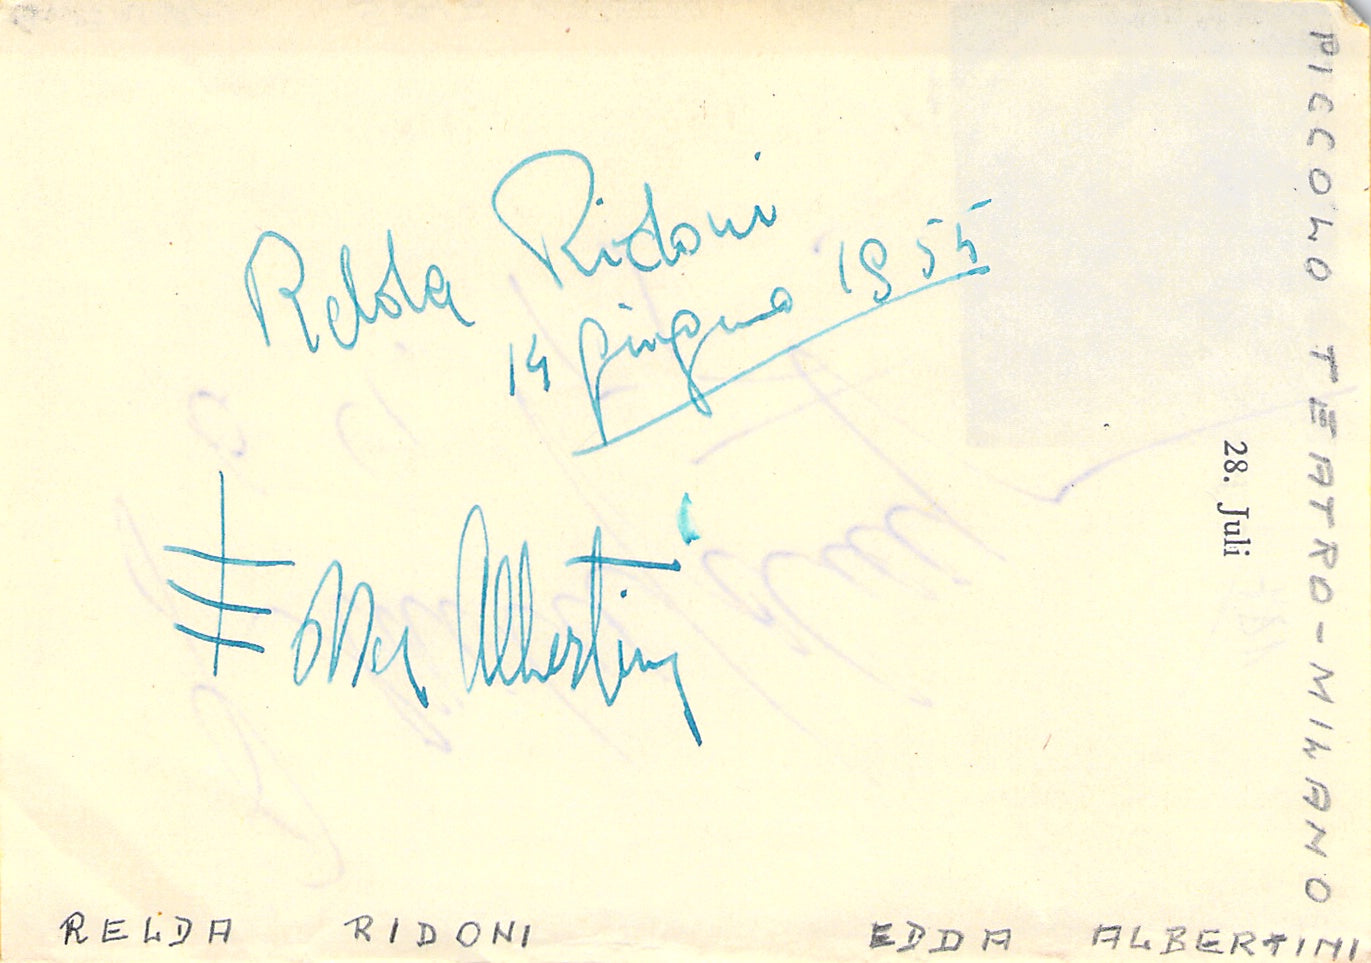 Relda Ridoni
14 giugno 1955
Edda Albertini
28. Juli
PICCOLO TEATRO-MILANO
RELDA RIDONI
EDDA ALBERTINI